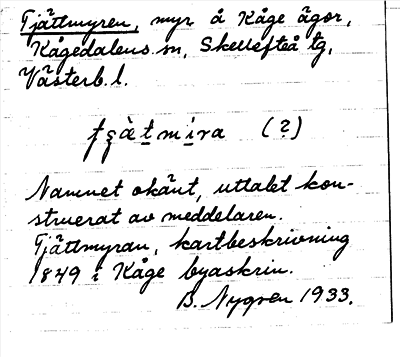 Tjättmyren, myr å Kåge ägor,
Kågedalens sn, Skellefteå tg,
Västerb. l.
tʂàtmira (?)
Namnet okänt, uttalet kon-
struerat av meddelaren.
Tjättmyran, kartbeskrivning
1849 i Kåge byaskrin.
B. Nygren 1933.